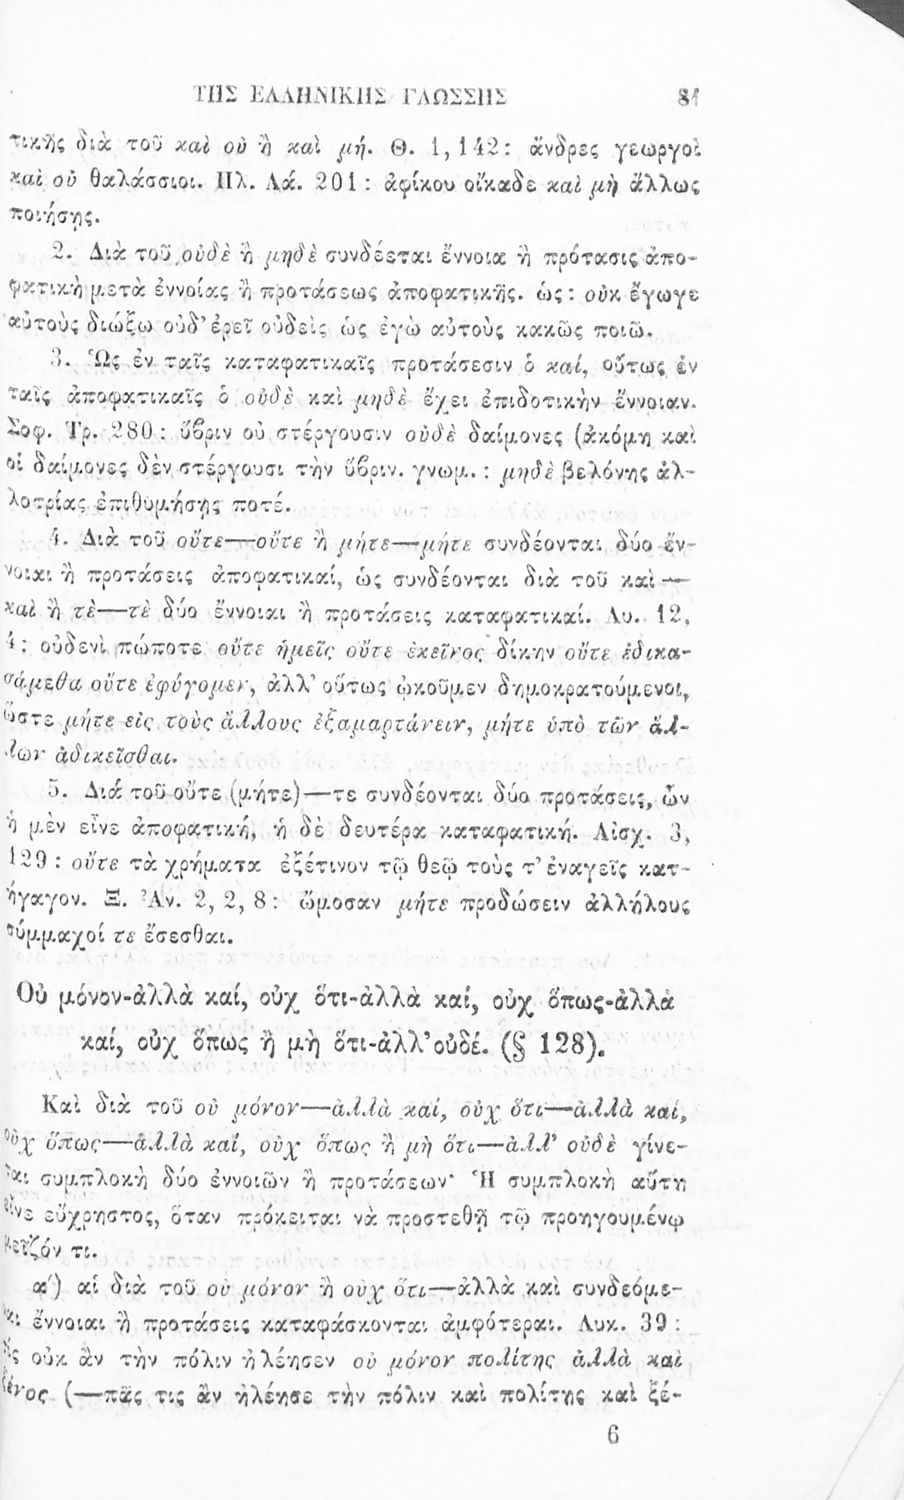 ΤΗΣ ΕΛΛΗΝΙΚΗΣ ΓΛΩΣΣΗΣ 81
τικῆς διὰ τοῦ καὶ οὐ ἢ καὶ μή. Θ. 1, 142: ἄνδρες γεωργοὶ
καὶ οὐ θαλάσσιοι. Πλ. Λά. 201 : ἀφίκου οἴκαδε καὶ μὴ ἄλλως
ποιήσῃς.
2. Διὰ τοῦ οὐδὲ ἢ μηδὲ συνδέεται ἔννοια ἢ πρότασις ἀπο-
φατικὴ μετὰ ἐννοίας ἢ προτάσεως ἀποφατικῆς. ὡς : οὐκ ἔγωγε
αὐτοὺς διώξω οὐδ' ἐρεῖ οὐδεὶς ὡς ἐγὼ αὐτοὺς κακῶς ποιῶ.
3. Ὡς ἐν ταῖς καταφατικαῖς προτάσεσιν ὁ καί, οὕτως ἐν
ταῖς ἀποφατικαῖς ὁ οὐδὲ καὶ μηδὲ ἔχει ἐπιδοτικὴν ἔννοιαν.
Σοφ. Τρ. 280 : ὕβριν οὐ στέργουσιν οὐδὲ δαίμονες (ἀκόμη καὶ
οἱ δαίμονες δὲν στέργουσι τὴν ὕβριν. γνωμ. : μηδὲ βελόνης ἀλ-
λοτρίας ἐπιθυμήσῃς ποτέ.
4. Διὰ τοῦ οὔτε—οὔτε ἢ μήτε—μήτε συνδέονται δύο ἔν-
νοιαι ἢ προτάσεις ἀποφατικαί, ὡς συνδέονται διὰ τοῦ καὶ—
καὶ ἢ τὲ—τὲ δύο ἔννοιαι ἢ προτάσεις καταφατικαί. Λυ. 12,
4 : οὐδενὶ πώποτε οὔτε ἡμεῖς οὔτε ἐκεῖνος δίκην οὔτε ἐδικα-
σάμεθα οὔτε ἐφύγομεν, ἀλλ' οὕτως ᾠκοῦμεν δημοκρατούμενοι,
ὥστε μήτε εἰς τοὺς ἄλλους ἐξαμαρτάνειν, μήτε ὑπὸ τῶν ἄλ-
λων ἀδικεῖσθαι.
5. Διά τοῦ οὔτε (μήτε)—τε συνδέονται δύο προτάσεις, ὧν
ἡ μὲν εἶνε ἀποφατική, ἡ δὲ δευτέρα καταφατική. Αἰσχ. 3,
129 : οὔτε τὰ χρήματα ἐξέτινον τῷ θεῷ τοὺς τ' ἐναγεῖς κατ-
ήγαγον. Ξ. Ἀν. 2, 2, 8 : ὤμοσαν μήτε προδώσειν ἀλλήλους
σύμμαχοί τε ἔσεσθαι.
Οὐ μόνον-ἀλλὰ καί, οὐχ ὅτι-ἀλλὰ καί, οὐχ ὅπως-ἀλλὰ
καί, οὐχ ὅπως ἢ μὴ ὅτι-ἀλλ' οὐδέ. (§ 128).
Καὶ διὰ τοῦ οὐ μόνον—ἀλλὰ καί, οὐχ ὅτι—ἀλλὰ καί,
οὐχ ὅπως—ἀλλὰ καί, οὐχ ὅπως ἢ μὴ ὅτι—ἀλλ' οὐδὲ γίνε-
ται συμπλοκὴ δύο ἐννοιῶν ἢ προτάσεων· Ἡ συμπλοκὴ αὕτη
εἶνε εὔχρηστος, ὅταν πρόκειται νὰ προστεθῇ τῷ προηγουμένῳ
μεῖζόν τι.
α') αἱ διὰ τοῦ οὐ μόνον ἢ οὐχ ὅτι—ἀλλὰ καὶ συνδεόμε-
ναι ἔννοιαι ἢ προτάσεις καταφάσκονται ἀμφότεραι. Λυκ. 39 :
τίς οὐκ ἂν τὴν πόλιν ἠλέησεν οὐ μόνον πολίτης ἀλλὰ καὶ
ξένος (—πᾶς τις ἂν ἠλέησε τὴν πόλιν καὶ πολίτης καὶ ξέ-
6